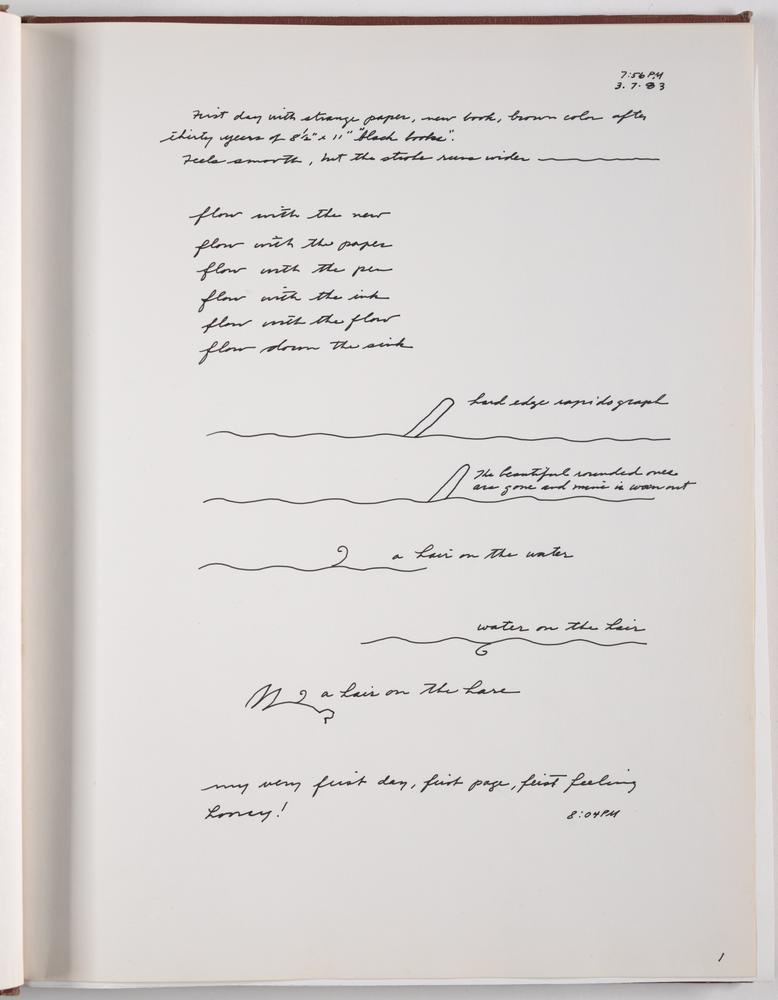 7:56 PM
3.7.83
First day with strange paper, new book, brown color after
thirty years of 8½" x 11" "black books".
Feels smooth, but the stroke runs wider
flow with the new
flow with the paper
flow with the pen
flow with the ink
flow with the flow
flow down the sink
hard edge rapidograph
The beautiful rounded ones
are gone and mine is worn out
a hair on the water
water on the hair
a hair on the hare
my very first day, first page, first feeling
1
8:04 PM